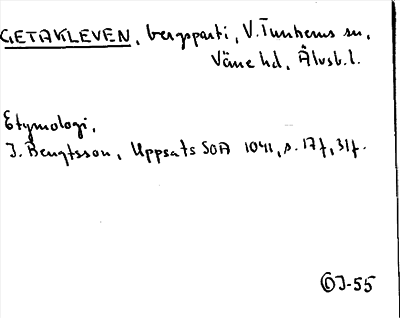 GETAKLEVEN, bergsparti, V. Tunhems sn,
Väne hd, Älvsb. l.
Etymologi,
J. Bengtsson, Uppsats SOA 1041, s. 17f, 31f.
J-55